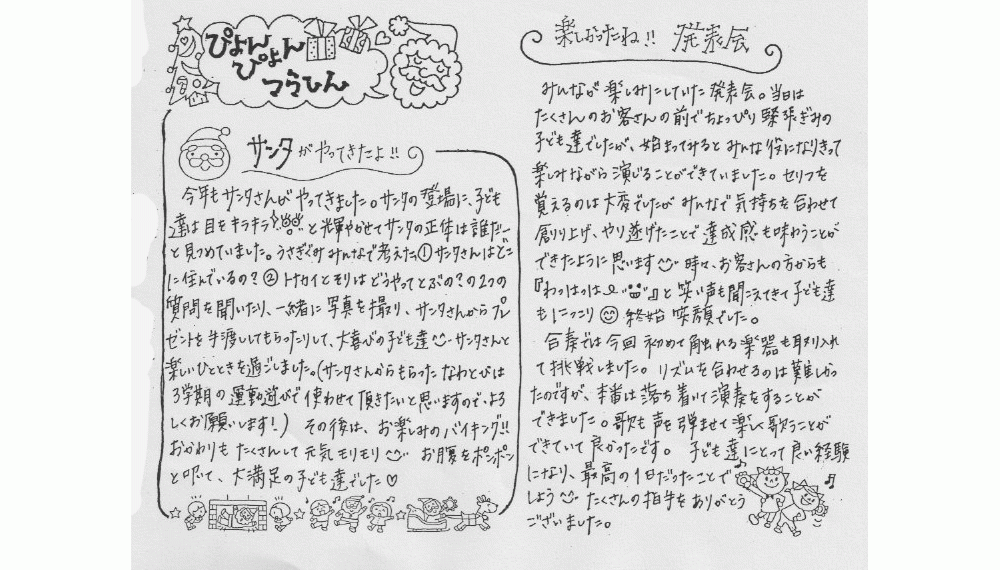 ぴょんぴょん
ぴょん
つうしん
サンタがやってきたよ!!
今年もサンタさんがやってきました。サンタの登場に、子ども
達は目をキラキラと光輝やかせてサンタの正体は誰だー
と見つめていました。うさぎぐみみんなで考えた①サンタさんはどこ
に住んでいるの?②トナカイとソリはどうやってとぶの?の2つの
質問を聞いたり、一緒に写真を撮り、サンタさんからプレ
ゼントを手渡ししてもらったりして、大喜びの子ども達 サンタさんと
楽しいひとときを過ごしました。(サンタさんからもらったなわとびは
3学期の運動遊びで使わせて頂きたいと思いますので、よろ
しくお願います!) その後は、お楽しみのバイキング!!
おかわりもたくさんして元気モリモリ お腹をポンポン
と叩いて、大満足の子ども達でした♡
楽しかったね!! 発表会
みんなが楽しみにしていた発表会。当日は
たくさんのお客さんの前でちょっぴり緊張ぎみの
子ども達でしたが、始まってみるとみんな役になりきって
楽しみながら演じることができていました。セリフを
覚えるのは大変でしたがみんなで気持ちを合わせて
創り上げ、やり遂げたことで達成感も味わうことが
できたように思います 時々、お客さんの方からも
『わっはっは』と笑い声も聞こえてきて子ども達
もにっこり 終始笑顔でした。
合奏では今回初めて触れる楽器も取り入れ
て挑戦しました。リズムを合わせるのは難しかっ
たのですが、本番は落ち着いて演奏をすることが
できました。歌も声を弾ませて楽しく歌うことが
できていて良かったです。 子ども達にとって良い経験
になり、最高の1日だったことで
しょう たくさんの拍手をありがとう
ございました。